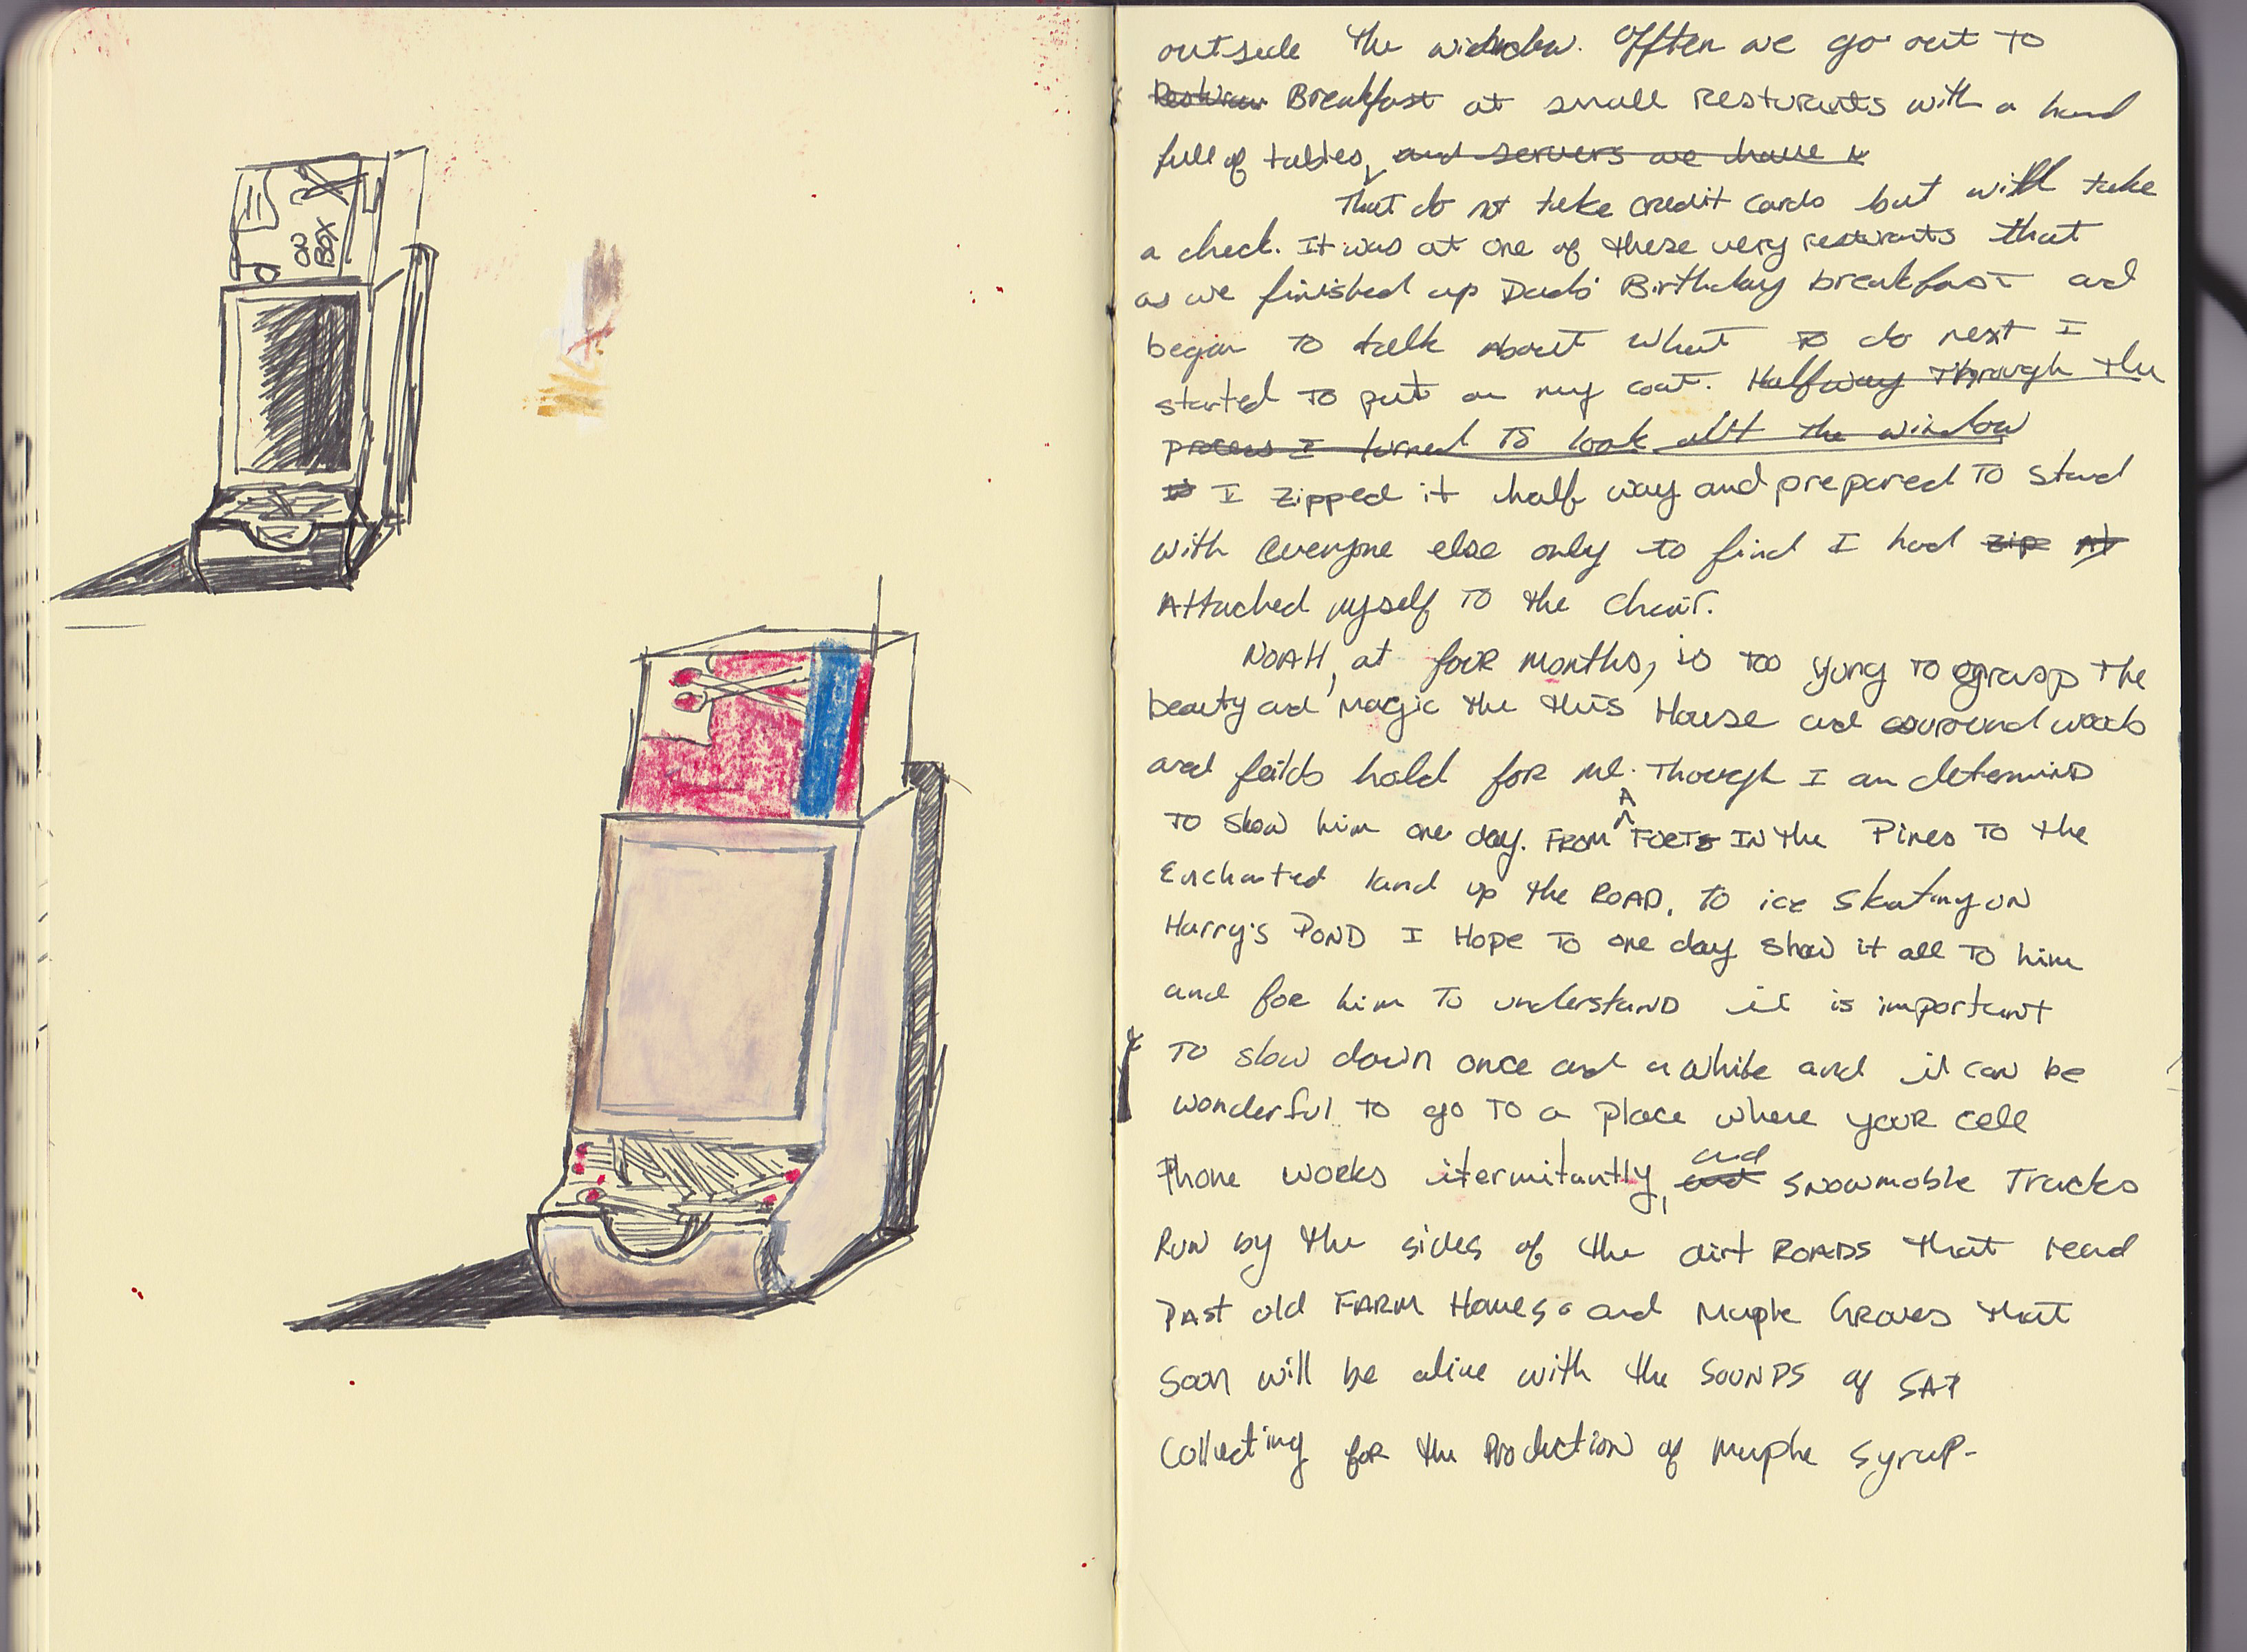 ON
BOX
outside the window. Offten we go out to
Breakfast at small resturants with a hand
full of tables, and servers we have
That do not take credit cards but will take
a check. It was at one of these very resturants that
as we finished up Dads Birthday breakfast and
began to talk About what to do next I
started to put on my coat. Halfway through the
process I turned to look out the window
I zipped it half way and prepared to stand
with everyone else only to find I had zip
Attached myself to the chair.
NOAH, at four months, is too yung to grasp the
beauty and magic the this House and suround woods
and feilds hold for me. Though I am determind
to show him one day. FROM A FORT IN the Pines to the
Enchanted land up the ROAD, to ice skating on
Harry's POND I Hope to one day show it all to him
and for him to understand it is important
to slow down once and a while and it can be
wonderful to go to a place where your cell
Phone works itermitantly, and snowmoble Tracks
Run by the sides of the dirt ROADS that
Past old FARM Homes and Maple Groves that
Soon will be alive with the SOUNDS of SAP
Collecting for the Production of Maple Syrup-